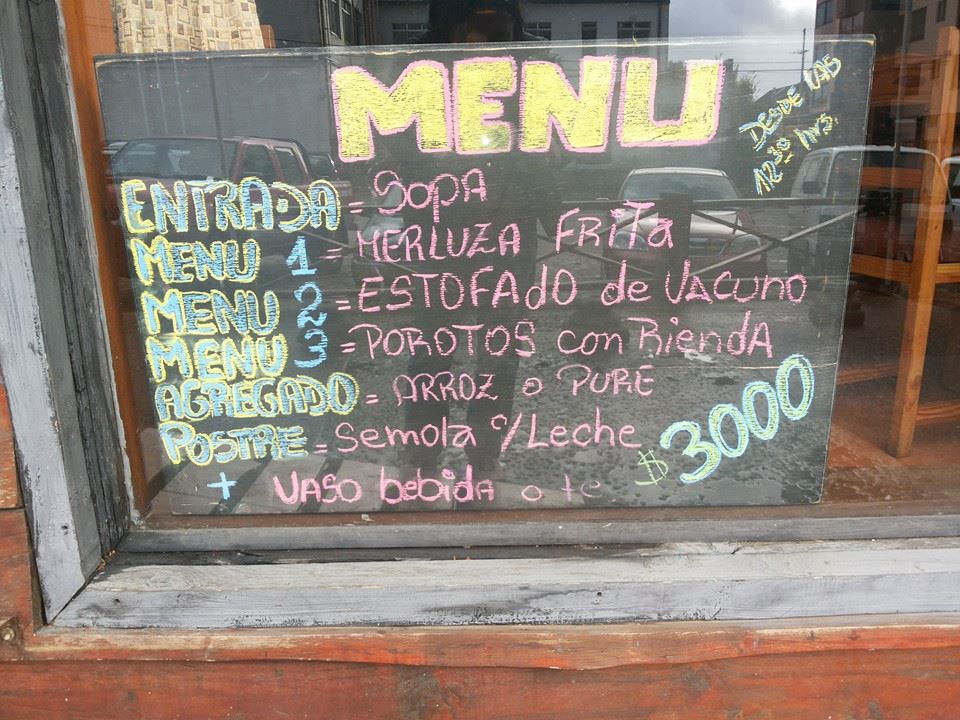 MENU
DESDE LAS
1230 hrs.
ENTRADA = Sopa
MENU 1 = MERLUZA FRita
MENU 2 = ESTOFADO de VACUNO
MENU 3 = POROTOS con RiendA
AGREGADO = ARROZ o PURE
POSTRE = Semola c/Leche
$3000
+ VASO bebida o te